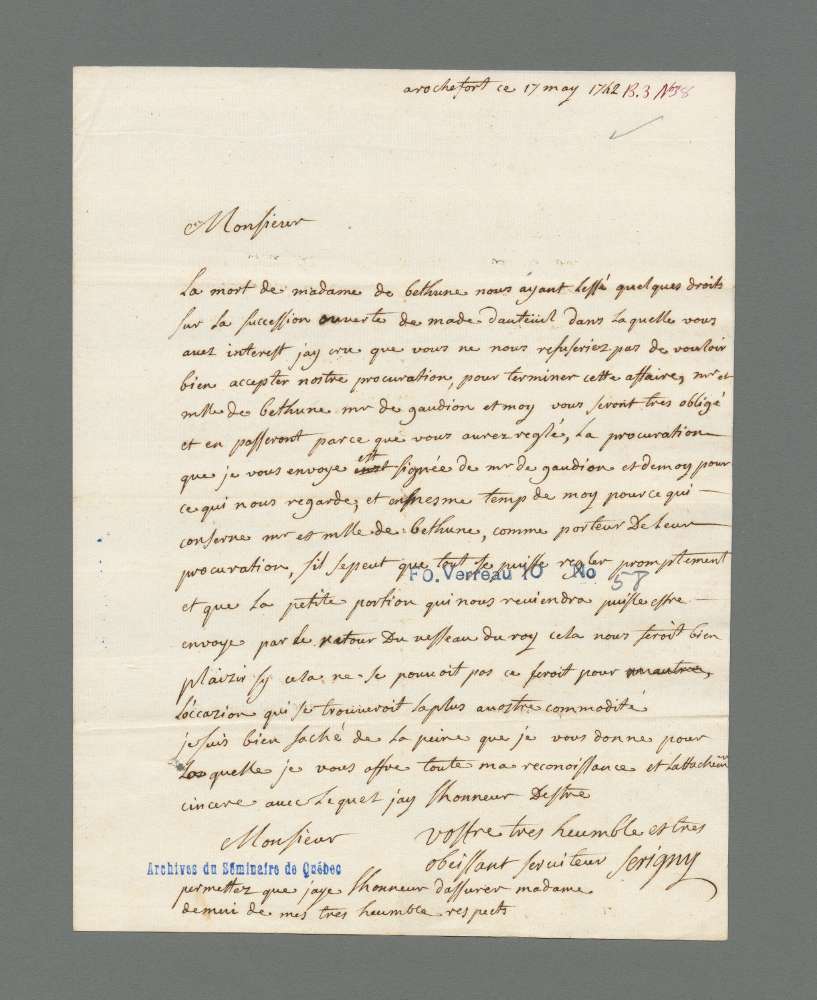 arochefort ce 17 may 1742 B.3 No 58
Monsieur
La mort de madame de bethune nous ayant lessé quelques droits
sur la succession ouverte de made dauteüil dans laquelle vous
avez interest jay cru que vous ne nous refuseriez pas de vouloir
bien accepter nostre procuration, pour terminer cette affaire, mr et
mlle de bethune mr de gaudion et moy vous seront tres obligé
et en passeront parce que vous aurez reglé, La procuration
que je vous envoye est signée de mr de gaudion et de moy pour
ce qui nous regarde, et en mesme temp de moy pour ce qui
conserne mr et mlle de bethune, comme porteur De Leur
procuration, s'il se peut que tout se puisse regler promptement
FO. Verreau 10 No 58
et que La petite portion qui nous reviendra puisse estre
envoye par le retour Du vesseau du roy cela nous seroit bien
plaizir sy cela ne se pouvoit pas ce seroit pour
Loccazion qui se trouveroit la plus a vostre commodité
je suis bien faché de La peine que je vous donne pour
Laquelle je vous offre toute ma reconoissance et Lattachem
cincere avec Lequel jay lhonneur Destre
Monsieur
vostre tres heumble et tres
obeissant serviteur Serigny
Archives du Séminaire de Québec
permettez que jaye lhonneur dassurer madame
demui de mes tres heumble respects